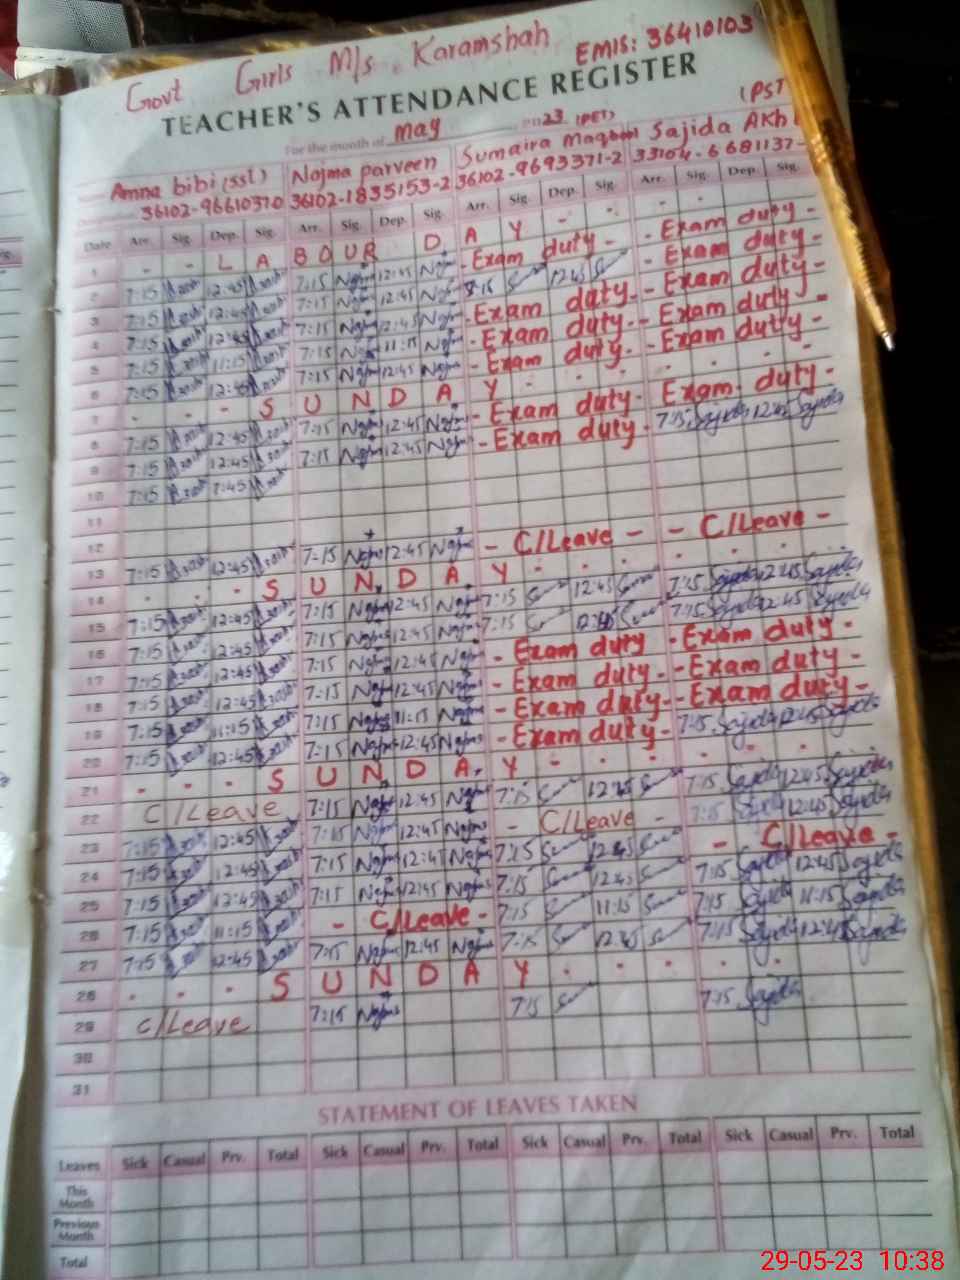 Govt Girls M/s Karamshah EMIS: 36410103
TEACHER'S ATTENDANCE REGISTER
For the month of May 23 (PET) (PST
Amna bibi (SST) Najma parveen Sumaira Maqbool Sajida Akh
36102-9661037-0 36102-1835153-2 36102-9693371-2 33104-6681137-
Date Arr. Sig. Dep. Sig. Arr. Sig. Dep. Sig. Arr. Sig. Dep. Sig. Arr. Sig. Dep. Sig.
1 - - L A B O U R D A Y - -
2 7:15 12:45 7:15 12:45 - Exam duty - - Exam duty -
3 7:15 12:45 7:15 12:45 7:15 12:45 - Exam duty -
4 7:15 12:45 7:15 12:45 - Exam duty - - Exam duty -
5 7:15 11:15 7:15 11:15 - Exam duty - - Exam duty -
6 7:15 12:45 7:15 12:45 - Exam duty - - Exam duty -
7 - - - S U N D A Y - - - -
8 7:15 12:45 7:15 12:45 - Exam duty - Exam duty -
9 7:15 12:45 7:15 12:45 - Exam duty - 7:15 Sajida 12:45 Sajida
10 7:15 7:45
11
12
13 7:15 12:45 7:15 Najma 12:45 Najma - C/Leave - - C/Leave -
14 - - - S U N D A Y - - - -
15 7:15 12:45 7:15 Najma 12:45 Najma 7:15 12:45 7:15 Sajida 12:45 Sajida
16 7:15 12:45 7:15 Najma 12:45 Najma 7:15 12:45 7:15 Sajida 12:45 Sajida
17 7:15 12:45 7:15 Najma 12:45 Najma - Exam duty - Exam duty -
18 7:15 12:45 7:15 Najma 12:45 Najma - Exam duty - Exam duty -
19 7:15 11:15 7:15 Najma 11:15 Najma - Exam duty - - Exam duty -
20 7:15 12:45 7:15 Najma 12:45 Najma - Exam duty - 7:15 Sajida 12:45 Sajida
21 - - - S U N D A Y - - - -
22 C/Leave 7:15 Najma 12:45 Najma 7:15 12:45 7:15 Sajida 12:45 Sajida
23 7:15 12:45 7:15 Najma 12:45 Najma - C/Leave - 7:15 Sajida 12:45 Sajida
24 7:15 12:45 7:15 Najma 12:45 Najma 7:15 12:45 - C/Leave -
25 7:15 12:45 7:15 Najma 12:45 Najma 7:15 12:45 7:15 Sajida 12:45 Sajida
26 7:15 11:15 - C/Leave - 7:15 11:15 7:15 Sajida 11:15 Sajida
27 7:15 12:45 7:15 Najma 12:45 Najma 7:15 12:45 7:15 Sajida 12:45 Sajida
28 - - - S U N D A Y - - - -
29 C/Leave 7:15 Najma 7:15 7:15 Sajida
30
31
STATEMENT OF LEAVES TAKEN
Leaves Sick Casual Prv. Total Sick Casual Prv. Total Sick Casual Prv. Total Sick Casual Prv. Total
This Month
Previous Month
Total
29-05-23 10:38